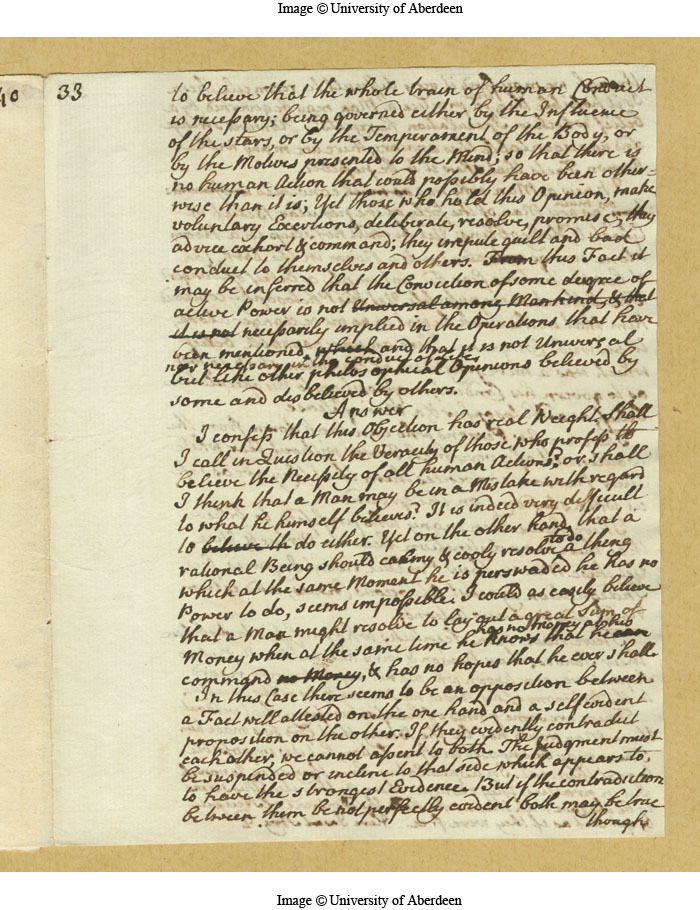 Image © University of Aberdeen
40
33
to believe that the whole train of human Conduct
is necessary; being governed either by the Influence
of the stars, or by the Temperament of the Body, or
by the Motives presented to the Mind; so that there is
no human Action that could possibly have been other=
wise than it is; Yet those who hold this Opinion, make
voluntary Exertions, deliberate, resolve, promise, they
advice exhort & command; they impute guilt and bad
conduct to themselves and others. From this Fact it
may be inferred that the Conviction of some degree of
active Power is not Universal among Mankind, & that
it is not necessarily implied in the Operations that have
been mentioned, which and that it is not Universal
nor necessary in the conduct of
but like other philosophical Opinions believed by
some and disbelieved by others.
Answer
I confess that this Objection has real Weight. Shall
I call in Question the Veracity of those who profess to
believe the Necessity of all human Actions? or shall
I think that a Man may be in a Mistake with regard
to what he himself believes? It is indeed very difficult
to believe th do either. Yet on the other hand, that a
to do
rational Being should calmy & cooly resolve a thing
which at the same Moment he is perswaded he has no
Power to do, seems impossible. I could as easily believe
that a Man might resolve to lay out a great Sum of
has no money at his
Money when at the same time he knows that he can
command no Money, & has no hopes that he ever shall.
In this Case there seems to be an opposition between
a Fact well attested on the one hand and a self evident
proposition on the other. If they evidently contradict
each other, we cannot assent to both. The Judgment must
be suspended or incline to that side which appears to
to have the strongest Evidence. But if the contradiction
between them be not perfectly evident both may be true
though
Image © University of Aberdeen